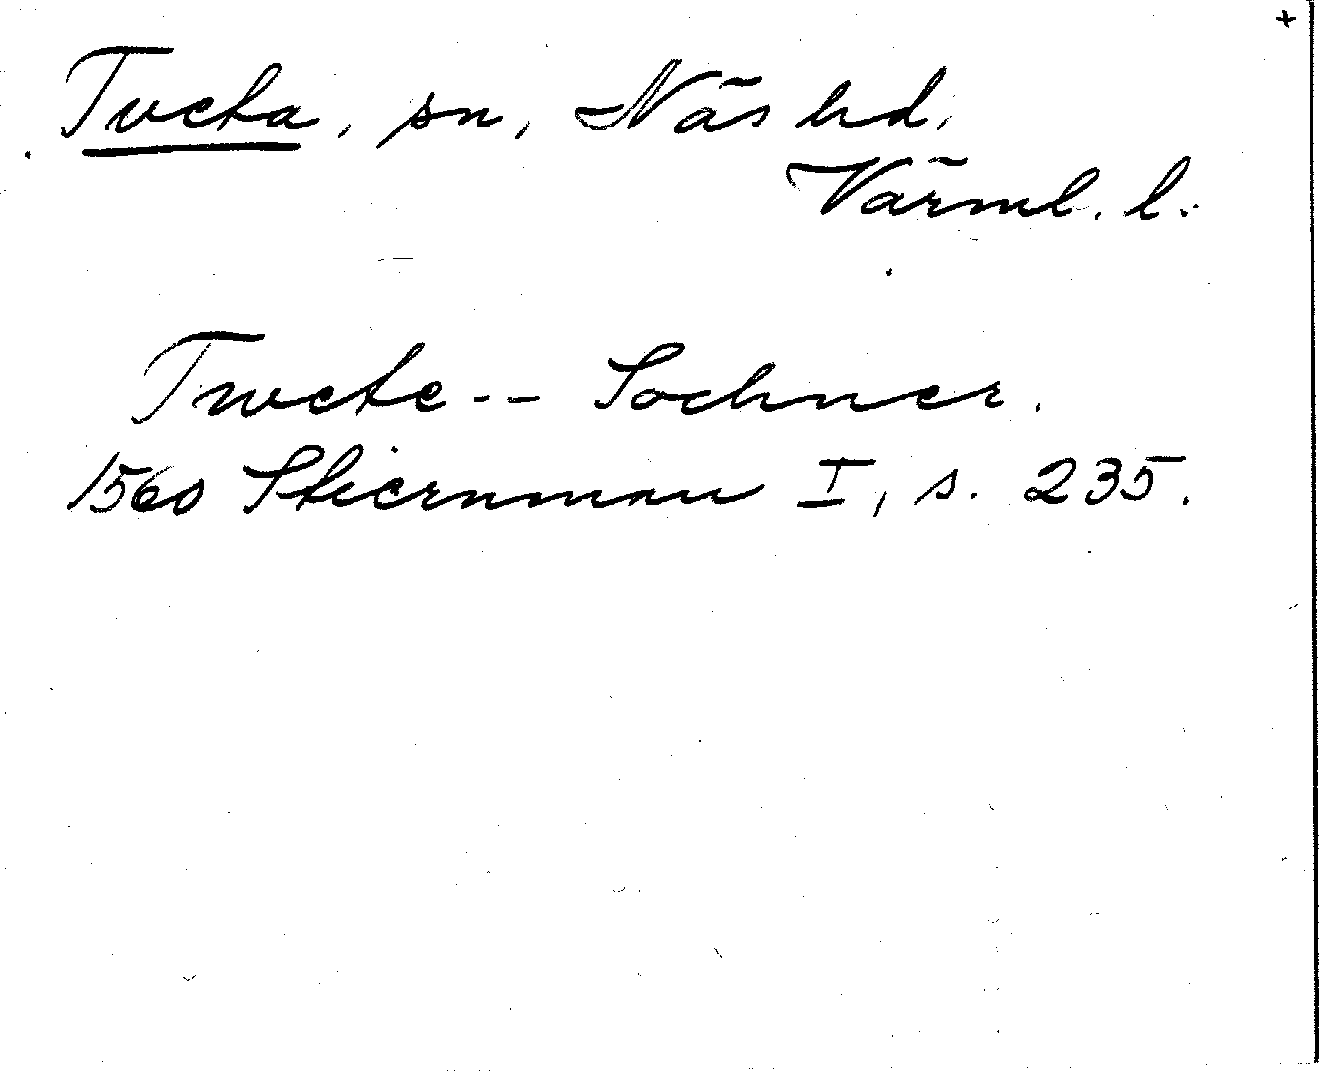 +
Tveta, sn, Näs hd,
Värml. l.
Twete-- Sochner.
1560 Stiernman I, s. 235.